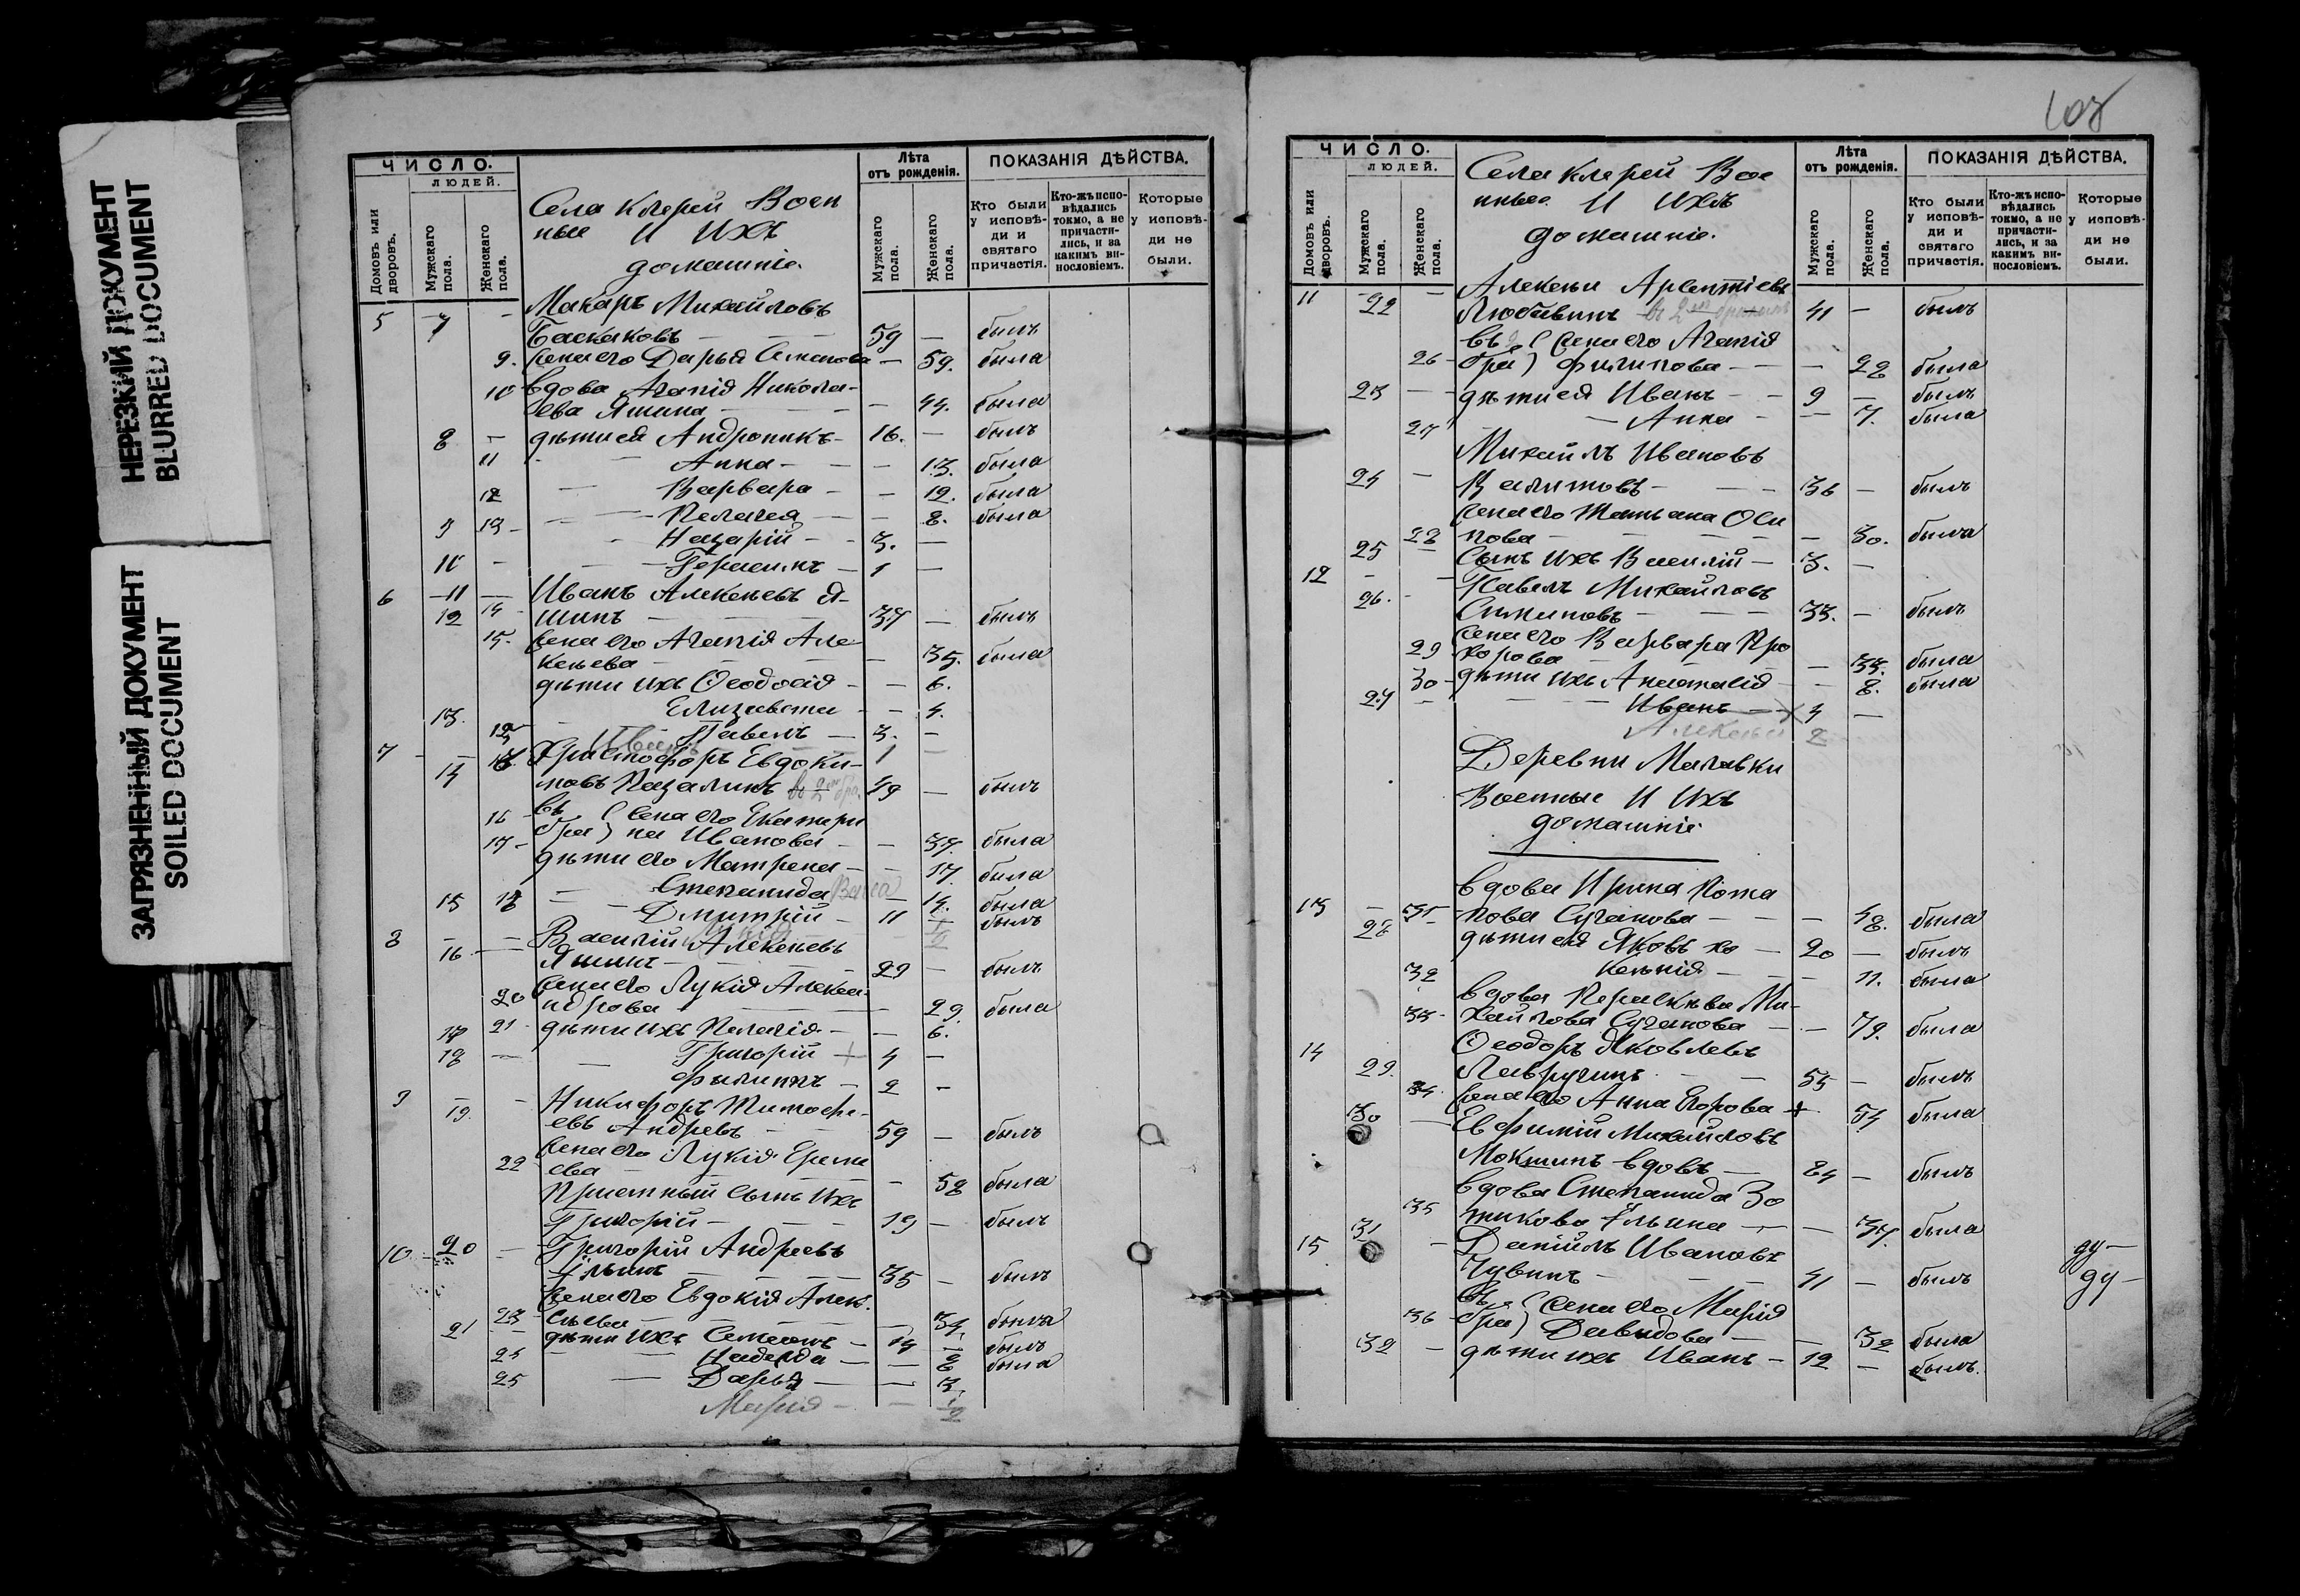 НЕРЕЗКИЙ ДОКУМЕНТ
BLURRED DOCUMENT
ЗАГРЯЗНЕННЫЙ ДОКУМЕНТ
SOILED DOCUMENT
ЧИСЛО.
ЛЮДЕЙ.
Домовъ или дворовъ.
Мужскаго пола.
Женскаго пола.
Села Ключей Воен
ные И ИХЪ
домашніе.
Лѣта
отъ рожденія.
Мужскаго пола.
Женскаго пола.
ПОКАЗАНІЯ ДѢЙСТВА.
Кто были
у исповѣ-
ди и
святаго
причастія.
Кто-жъ испо-
вѣдались
токмо, а не
причасти-
лись, и за
какимъ ви-
нословіемъ.
Которые
у исповѣ-
ди не
были.
5 7 - Макаръ Михайловъ
Баскаковъ - 59 - былъ
9. жена его Дарья Семенова - 59. была
10 вдова Агапія Никола-
ева Яшина - - 44. была
8 - дѣти ея Андроникъ - 16. - былъ
11 Анна - - 13. была
12 Варвара - - 12. была
13 - Пелагея - 8. была
9 Назарій - 3. -
10 - Германъ - 1 -
6 11 - Иванъ Алексѣевъ Я-
12 14 шинъ - 37 - былъ
15. жена его Агапія Але
ксѣева - - 35. была
дѣти ихъ Ѳеодосія - - 6.
Елизавета - - 4.
13. Павелъ - 3. -
7 - Христофоръ Евдоки-
14 мовъ Казалинъ 49 - былъ
16 въ 2 жена его Екатери
17 - бра) на Иванова - - 37. была
дѣти его Матрена - - 17. была
15 18 Степанида - 14. была
Дмитрій - 11 - былъ
8 - - Василій Алексѣевъ
16 - Яшинъ - 29 - былъ
жена его Лукія Алекса-
20 ндрова - 29. была
17 21 - дѣти ихъ Пелагія - - 6.
18 - Григорій + 4 -
Филиппъ - 2 -
9 - Никифоръ Тимофе-
19. евъ Андревъ - 59 - былъ
жена его Лукія Ереме
22 ева - - 58 была
Приемный сынъ ихъ
Григорій - 19 - былъ
10 20 - Григорій Андреевъ
Ильинъ - 35 - былъ
жена его Евдокія Алек.
23 сѣева - - 34, была
21 - дѣти ихъ Семеонъ - 14 - былъ
24 Надежда - - 8 была
25 - Дарья - - 3,
Марія -
108
ЧИСЛО.
ЛЮДЕЙ.
Домовъ или дворовъ.
Мужскаго пола.
Женскаго пола.
Села Ключей Вое
нные И ИХЪ
домашніе.
Лѣта
отъ рожденія.
Мужскаго пола.
Женскаго пола.
ПОКАЗАНІЯ ДѢЙСТВА.
Кто были
у исповѣ-
ди и
святаго
причастія.
Кто-жъ испо-
вѣдались
токмо, а не
причасти-
лись, и за
какимъ ви-
нословіемъ.
Которые
у исповѣ-
ди не
были.
11 22 - Алексѣи Арентіевъ
Любавинъ 41 - былъ
въ 2 (жена его Агапія
26 - бра) Филипова - - 28 была
23 - дѣти ея Иванъ - 9 - былъ
27 - Анна - 7. была
Михаилъ Ивановъ
24 - Валитовъ - 36 - былъ
жена его Татьяна Оси
28 пова - 30. была
25 - Сынъ ихъ Василій - 3. -
12 - - Павелъ Михайловъ
26. - 33. - былъ
жена его Варвара Про
29 хорова - 33. была
30 - дѣти ихъ Анастасія - 8. была
27 - Иванъ - 4 -
Алексѣи 2
Деревни Малавки
Военные И ИХЪ
домашніе
вдова Ирина Пота
13 - 31 - пова Суганова - - 48. была
28 дѣти ея Яковъ хо - 20 - былъ
32 Ксенія - - 11. была
вдова Параскева Ми-
33 - хайлова Суганова - - 79. была
14 Ѳеодоръ Яковлевъ
29. Лавругинъ - 55 - былъ
34. жена его Анна Егорова + 54 была
30 - Евфимій Михайловъ
Мокшинъ вдовъ - 84 - былъ
вдова Степанида Зо
35 тикова Ильина - - 37. была
15 31 - Даніилъ Ивановъ
Чувинъ - 41 - былъ
въ 2 (жена его Марія
36 - бра) Давыдова - - 32 была
32 - дѣти ихъ Иванъ - 12 - былъ.